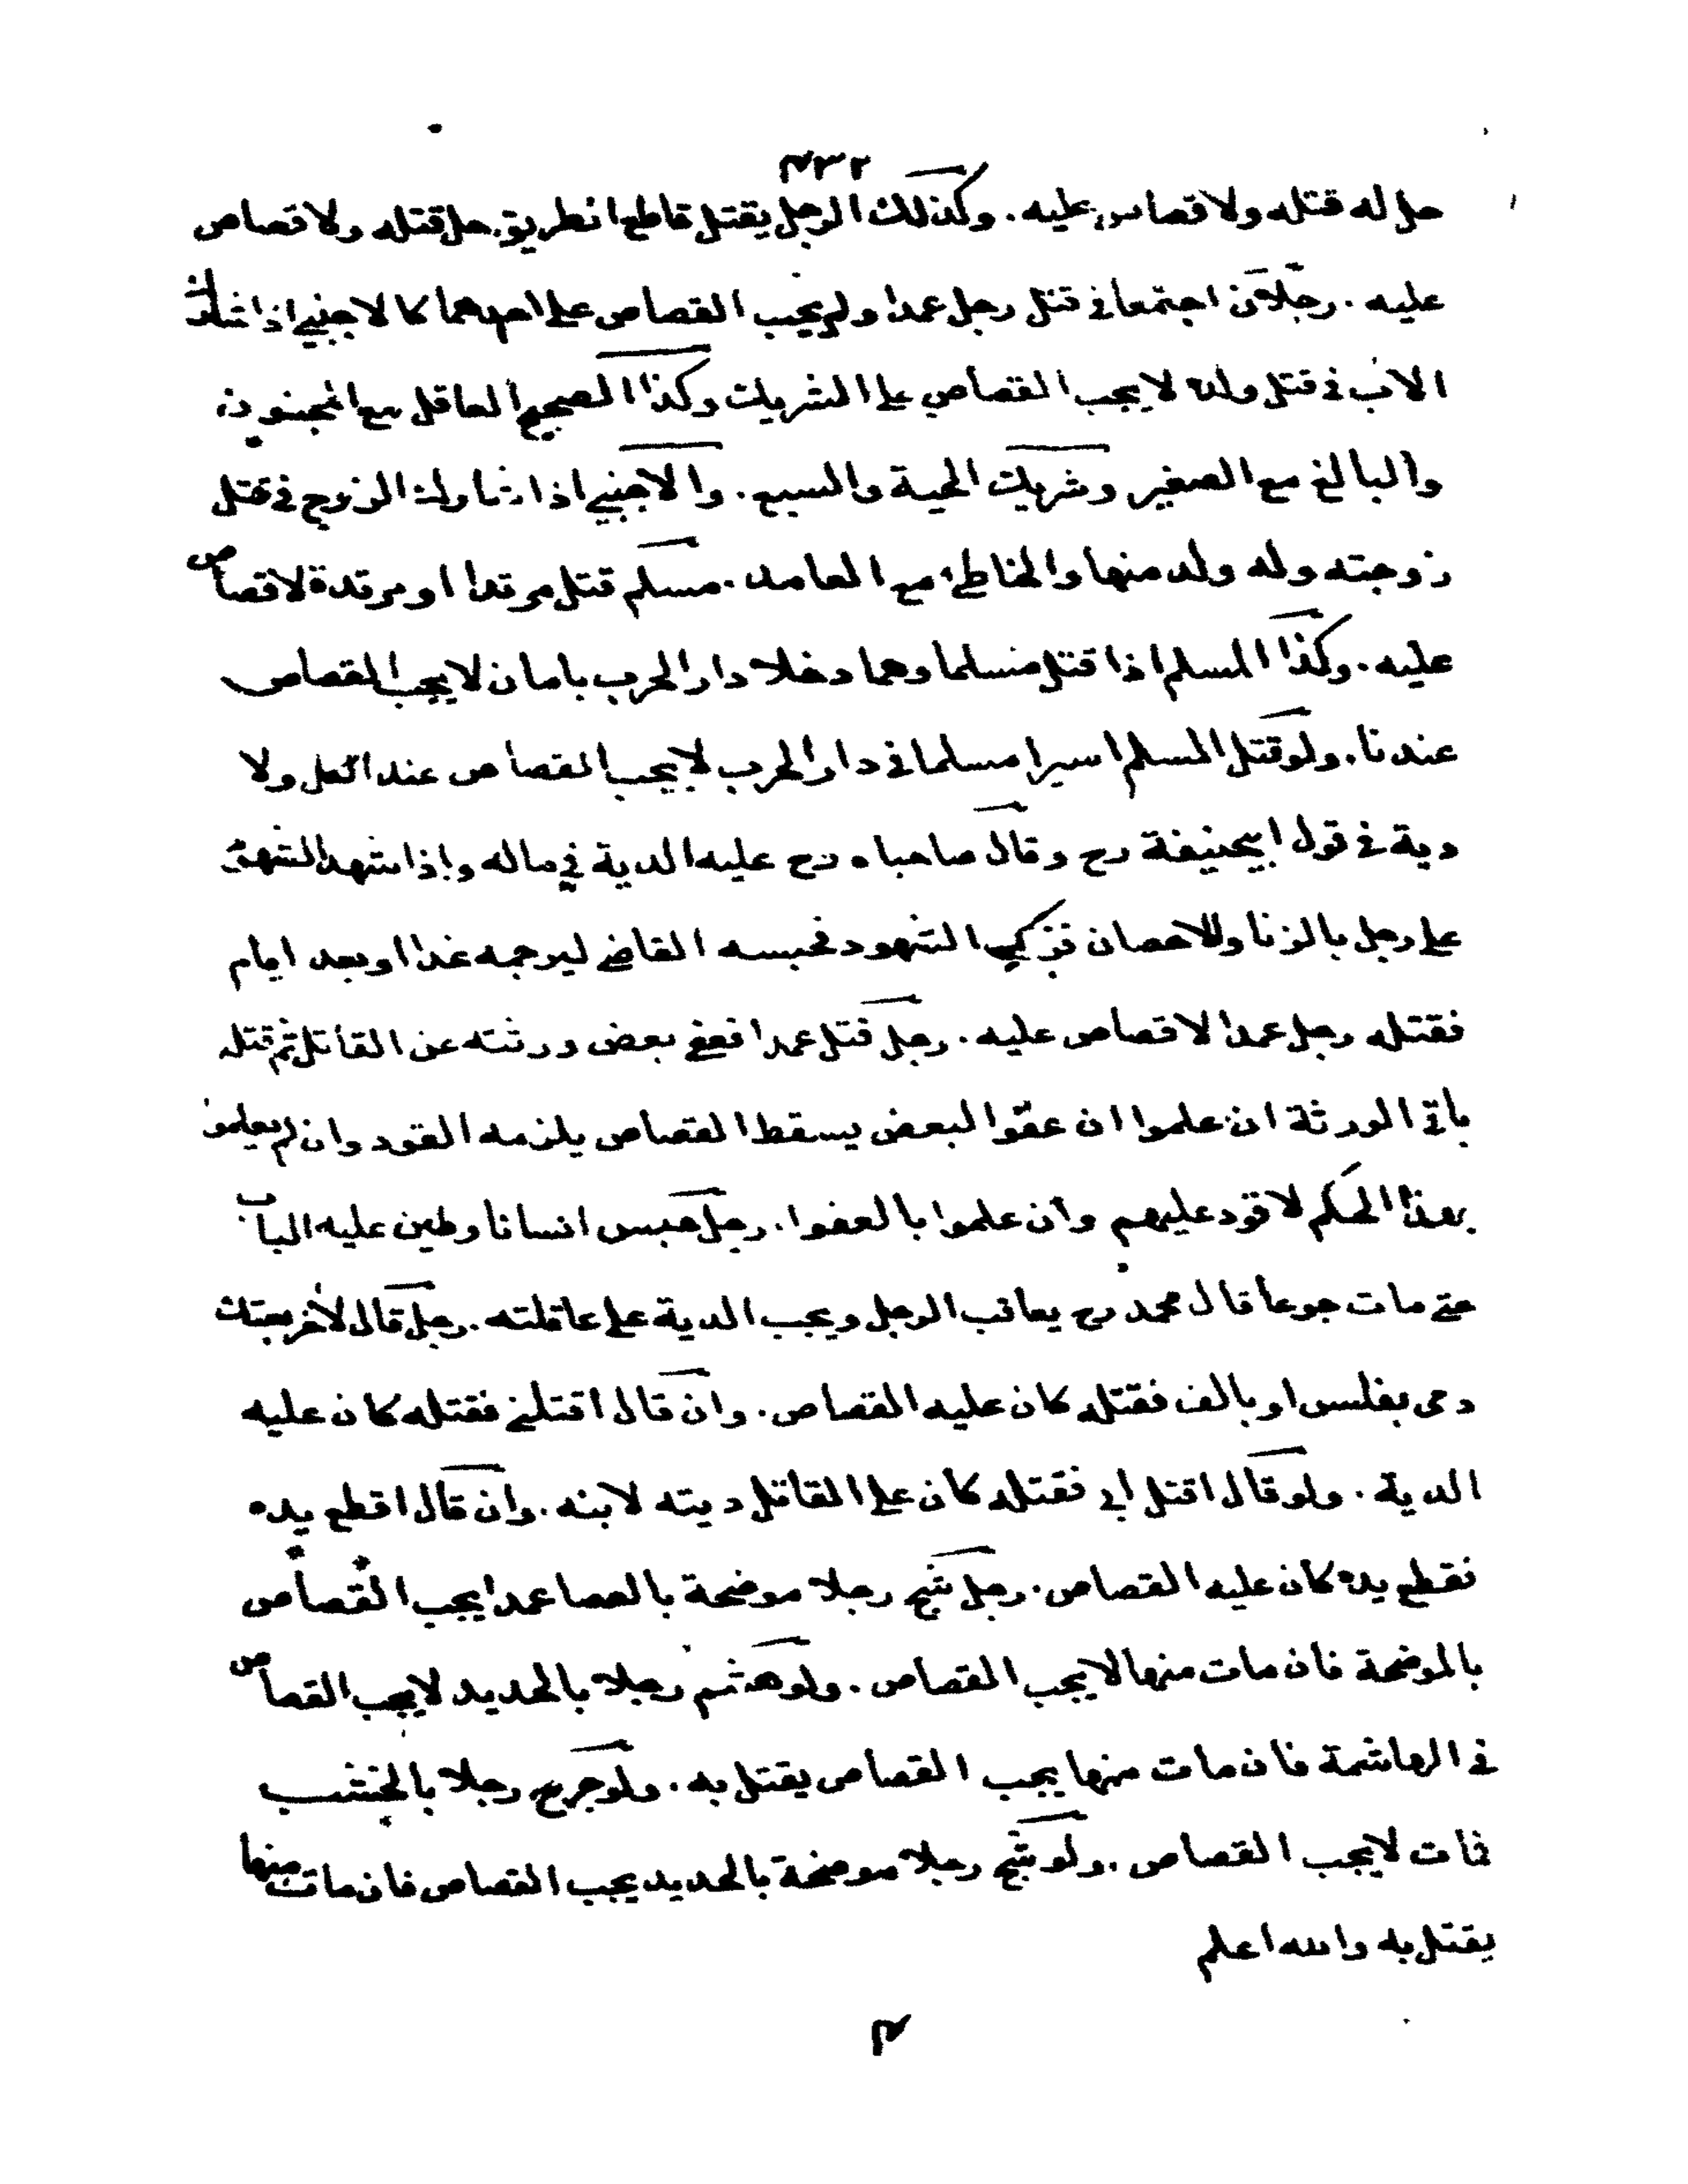 ٤٣٢
حل له قتله ولا قصاص عليه . وكذلك الرجل يقتل قاطع الطريق حل قتله ولا قصاص
عليه . رجلان اجتمعا في قتل رجل عمدا ولم يجب القصاص على احدهما كالاجنبي اذا شارك
الاب في قتل ولده لا يجب القصاص على الشريك وكذا الصحيح العاقل مع المجنون
والبالغ مع الصغير وشريك الحية والسبع . والاجنبي اذا شارك الزوج في قتل
زوجته وله ولد منها والخاطئ مع العامد . مسلم قتل مرتدا او مرتدة لا قصاص
عليه . وكذا المسلم اذا قتل مسلما وهما دخلا دار الحرب بامان لا يجب القصاص
عندنا . ولو قتل المسلم اسيرا مسلما في دار الحرب لا يجب القصاص عند الكل ولا
دية في قول ابيحنيفة رح وقال صاحباه رح عليه الدية في ماله واذا شهد الشهود
على رجل بالزنا والاحصان فزكي الشهود فحبسه القاضي ليرجمه غدا او بعد ايام
فقتله رجل عمدا لا قصاص عليه . رجل قتل عمدا فعفى بعض ورثته عن القاتل ثم قتله
باقي الورثة ان علموا ان عفو البعض يسقط القصاص يلزمه القود وان لم يعلموا
بهذا الحكم لا قود عليهم وان علموا بالعفوا . رجل حبس انسانا وطين عليه الباب
حتى مات جوعا قال محمد رح يعاقب الرجل ويجب الدية على عاقلته . رجل قال لآخر بعتك
دمى بفلس او بالف فقتله كان عليه القصاص . وان قال اقتلني فقتله كان عليه
الدية . ولو قال اقتل ابي فقتله كان على القاتل ديته لابنه . وان قال اقطع يده
فقطع يده كان عليه القصاص . رجل شج رجلا موضحة بالعصا عمدا يجب القصاص
بالموضحة فان مات منها لا يجب القصاص . ولو هشم رجلا بالحديد لا يجب القصاص
في الهاشمة فان مات منها يجب القصاص يقتل به . ولو جرح رجلا بالخشب
فمات لا يجب القصاص . ولو شج رجلا موضحة بالحديد يجب القصاص فان مات منها
يقتل به والله اعلم